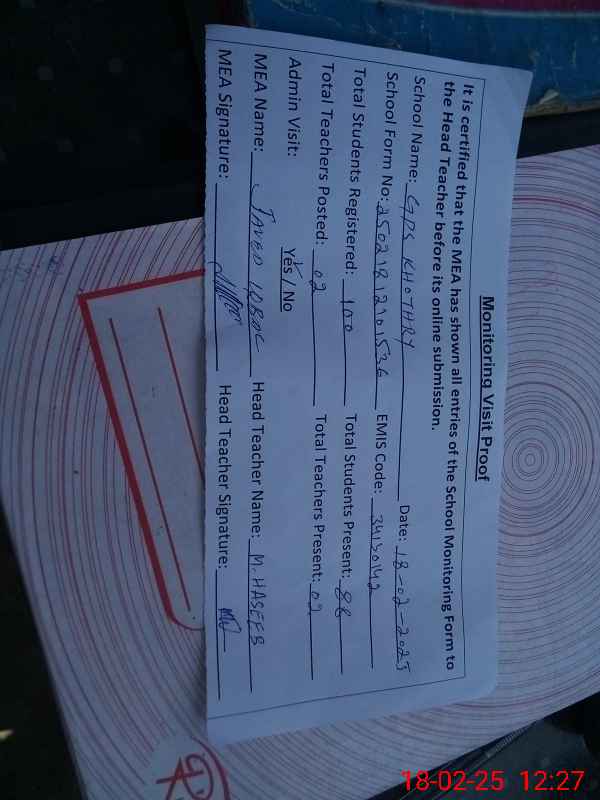 Monitoring Visit Proof
It is certified that the MEA has shown all entries of the School Monitoring Form to
the Head Teacher before its online submission.
School Name: GPS KHOTHRY Date: 18-02-2025
School Form No: 25021812901536 EMIS Code: 34130142
Total Students Registered: 100 Total Students Present: 88
Total Teachers Posted: 02 Total Teachers Present: 02
Admin Visit: Yes / No
MEA Name: JAVED IQBAL Head Teacher Name: M. HASEEB
MEA Signature: Head Teacher Signature:
18-02-25 12:27